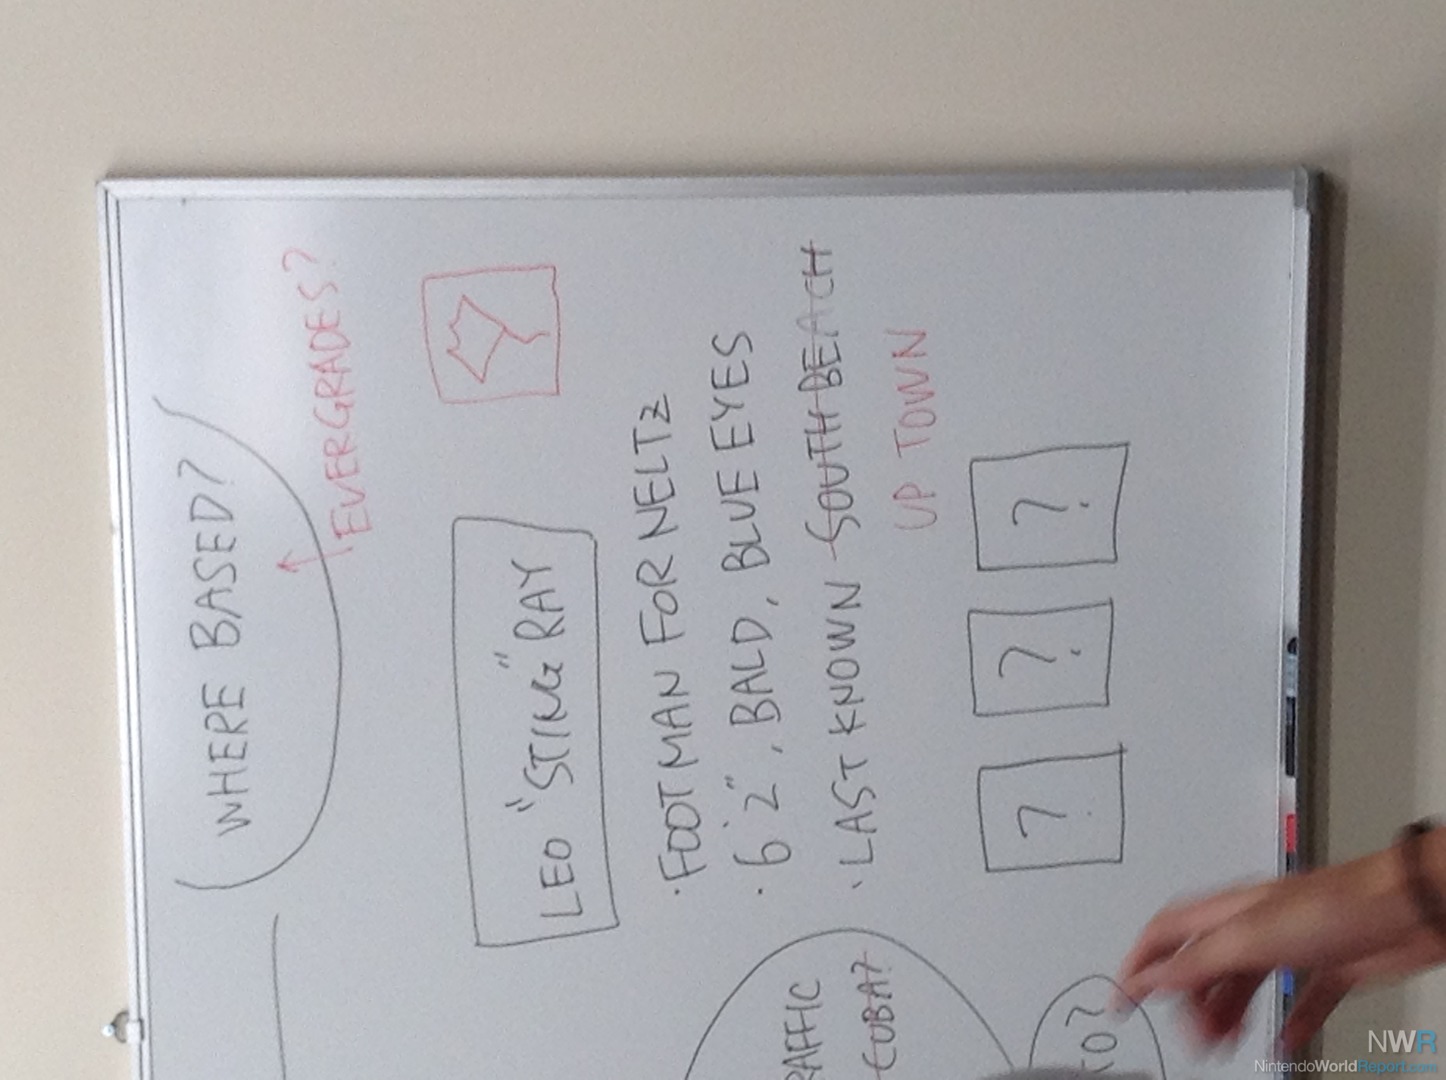 WHERE BASED?
EVERGRADES?
LEO "STING" RAY
· FOOTMAN FOR NELTZ
· 6'2", BALD, BLUE EYES
· LAST KNOWN SOUTH BEACH
UP TOWN
? ? ?
RAFFIC
CUBA?
TO?
NWR
NintendoWorldReport.com